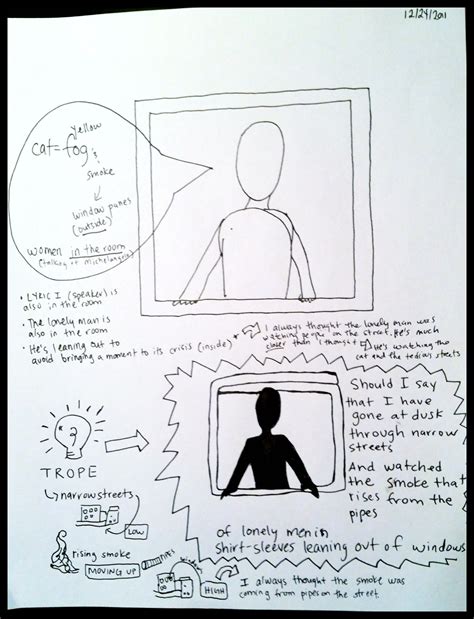 12/24/2011
yellow
cat = fog
&
smoke
window panes
(outside)
women in the room
(talking of michelangelo)
• LYRIC I (speaker) is
also in the room
• The lonely man is
also in the room
• He's leaning out to
avoid bringing a moment to its crisis (inside)
I always thought the lonely man was
watching people on the street. He's much
closer than I thought
He's watching the
cat and the tedious streets
Should I say
that I have
gone at dusk
through narrow
streets
And watched
the smoke that
rises from the
pipes
of lonely men in
shirt-sleeves leaning out of windows
?
TROPE
narrow streets
LOW
rising smoke
MOVING UP
PIPES
windows
HIGH
I always thought the smoke was
coming from pipes on the street.